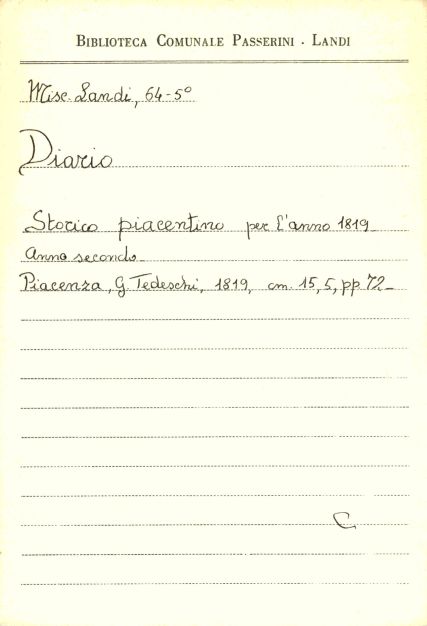 BIBLIOTECA COMUNALE PASSERINI - LANDI
Misc. Landi, 64-5°
Diario
Storico piacentino per l'anno 1819
Anno secondo_
Piacenza, G. Tedeschi, 1819, cm. 15,5, pp 72_
C